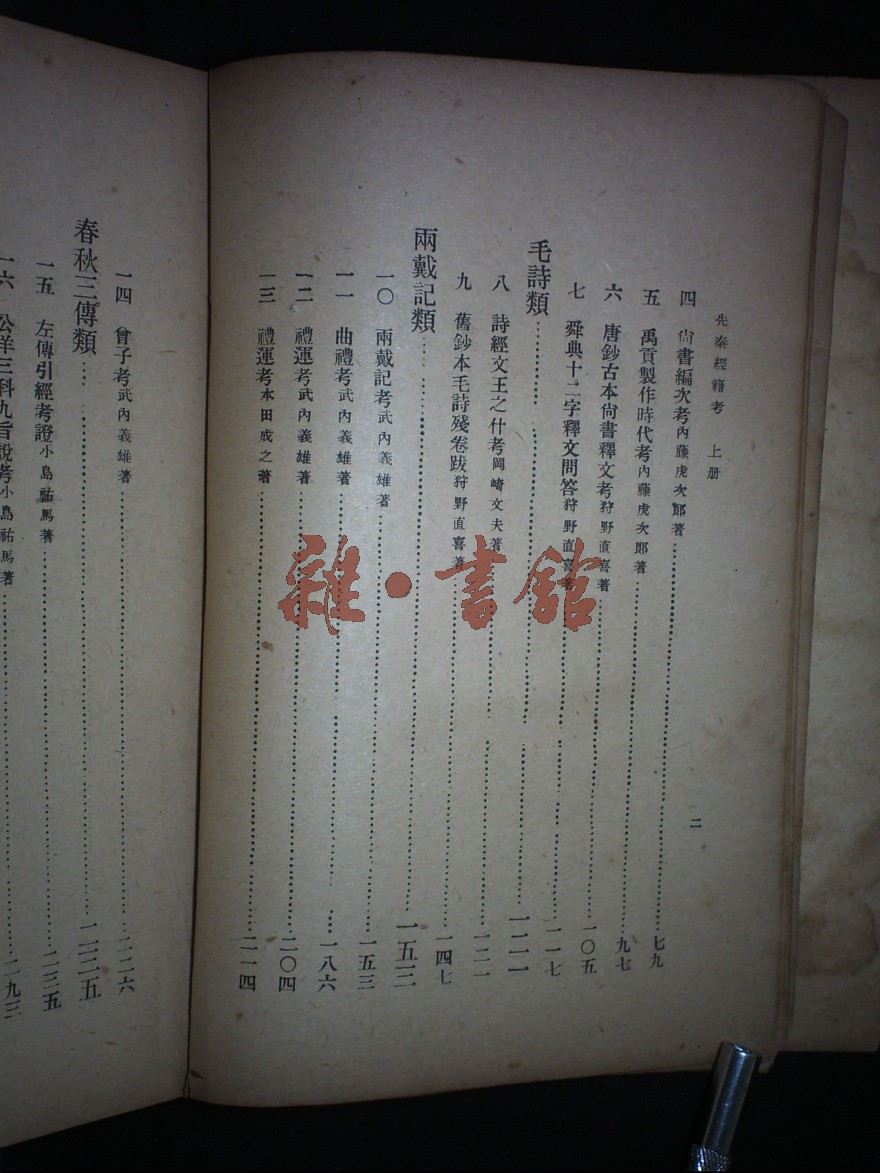 先秦經籍考　上册
二
四　尙書編次考內藤虎次郎著……七九
五　禹貢製作時代考內藤虎次郎著……九七
六　唐鈔古本尙書釋文考狩野直喜著……一〇五
七　舜典十二字釋文問答狩野直喜著……一一七
毛詩類……一二一
八　詩經文王之什考岡崎文夫著……一二一
九　舊鈔本毛詩殘卷跋狩野直喜著……一四七
兩戴記類……一五三
一〇　兩戴記考武內義雄著……一五三
一一　曲禮考武內義雄著……一八六
一二　禮運考武內義雄著……二〇四
一三　禮運考本田成之著……二一四
一四　曾子考武內義雄著……二二六
春秋三傳類……
一五　左傳引經考證小島祐馬著……二三五
一六　公羊三科九旨說考小島祐馬著……二九三
雜·書館